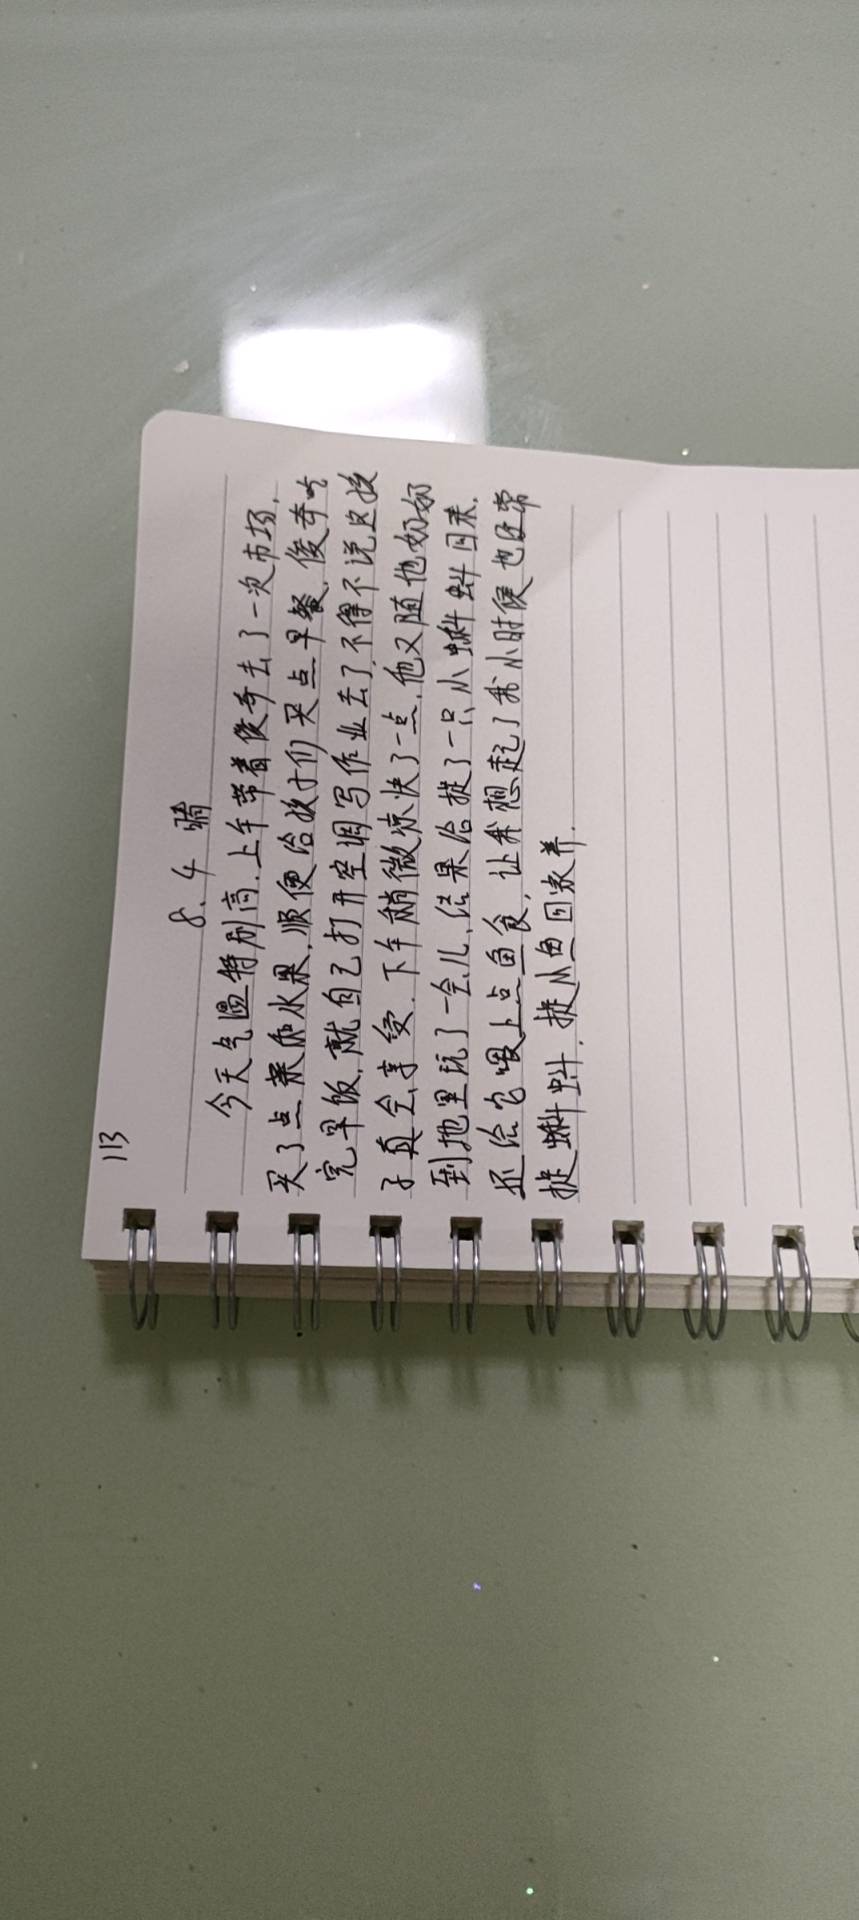 113
8.4 晴
今天气温特别高.上午带着俊奇去了一次市场.
买了点菜和水果,顺便给孩子们买点早餐,俊奇吃
完早饭,就自己打开空调写作业去了,不得不说这孩
子真会享受.下午稍微凉快了一点,他又随他奶奶
到地里玩了一会儿,结果给捉了一只小蝌蚪回来.
还给它喂上点鱼食,让我想起了我小时候也经常
捉蝌蚪.捉小鱼回家养.